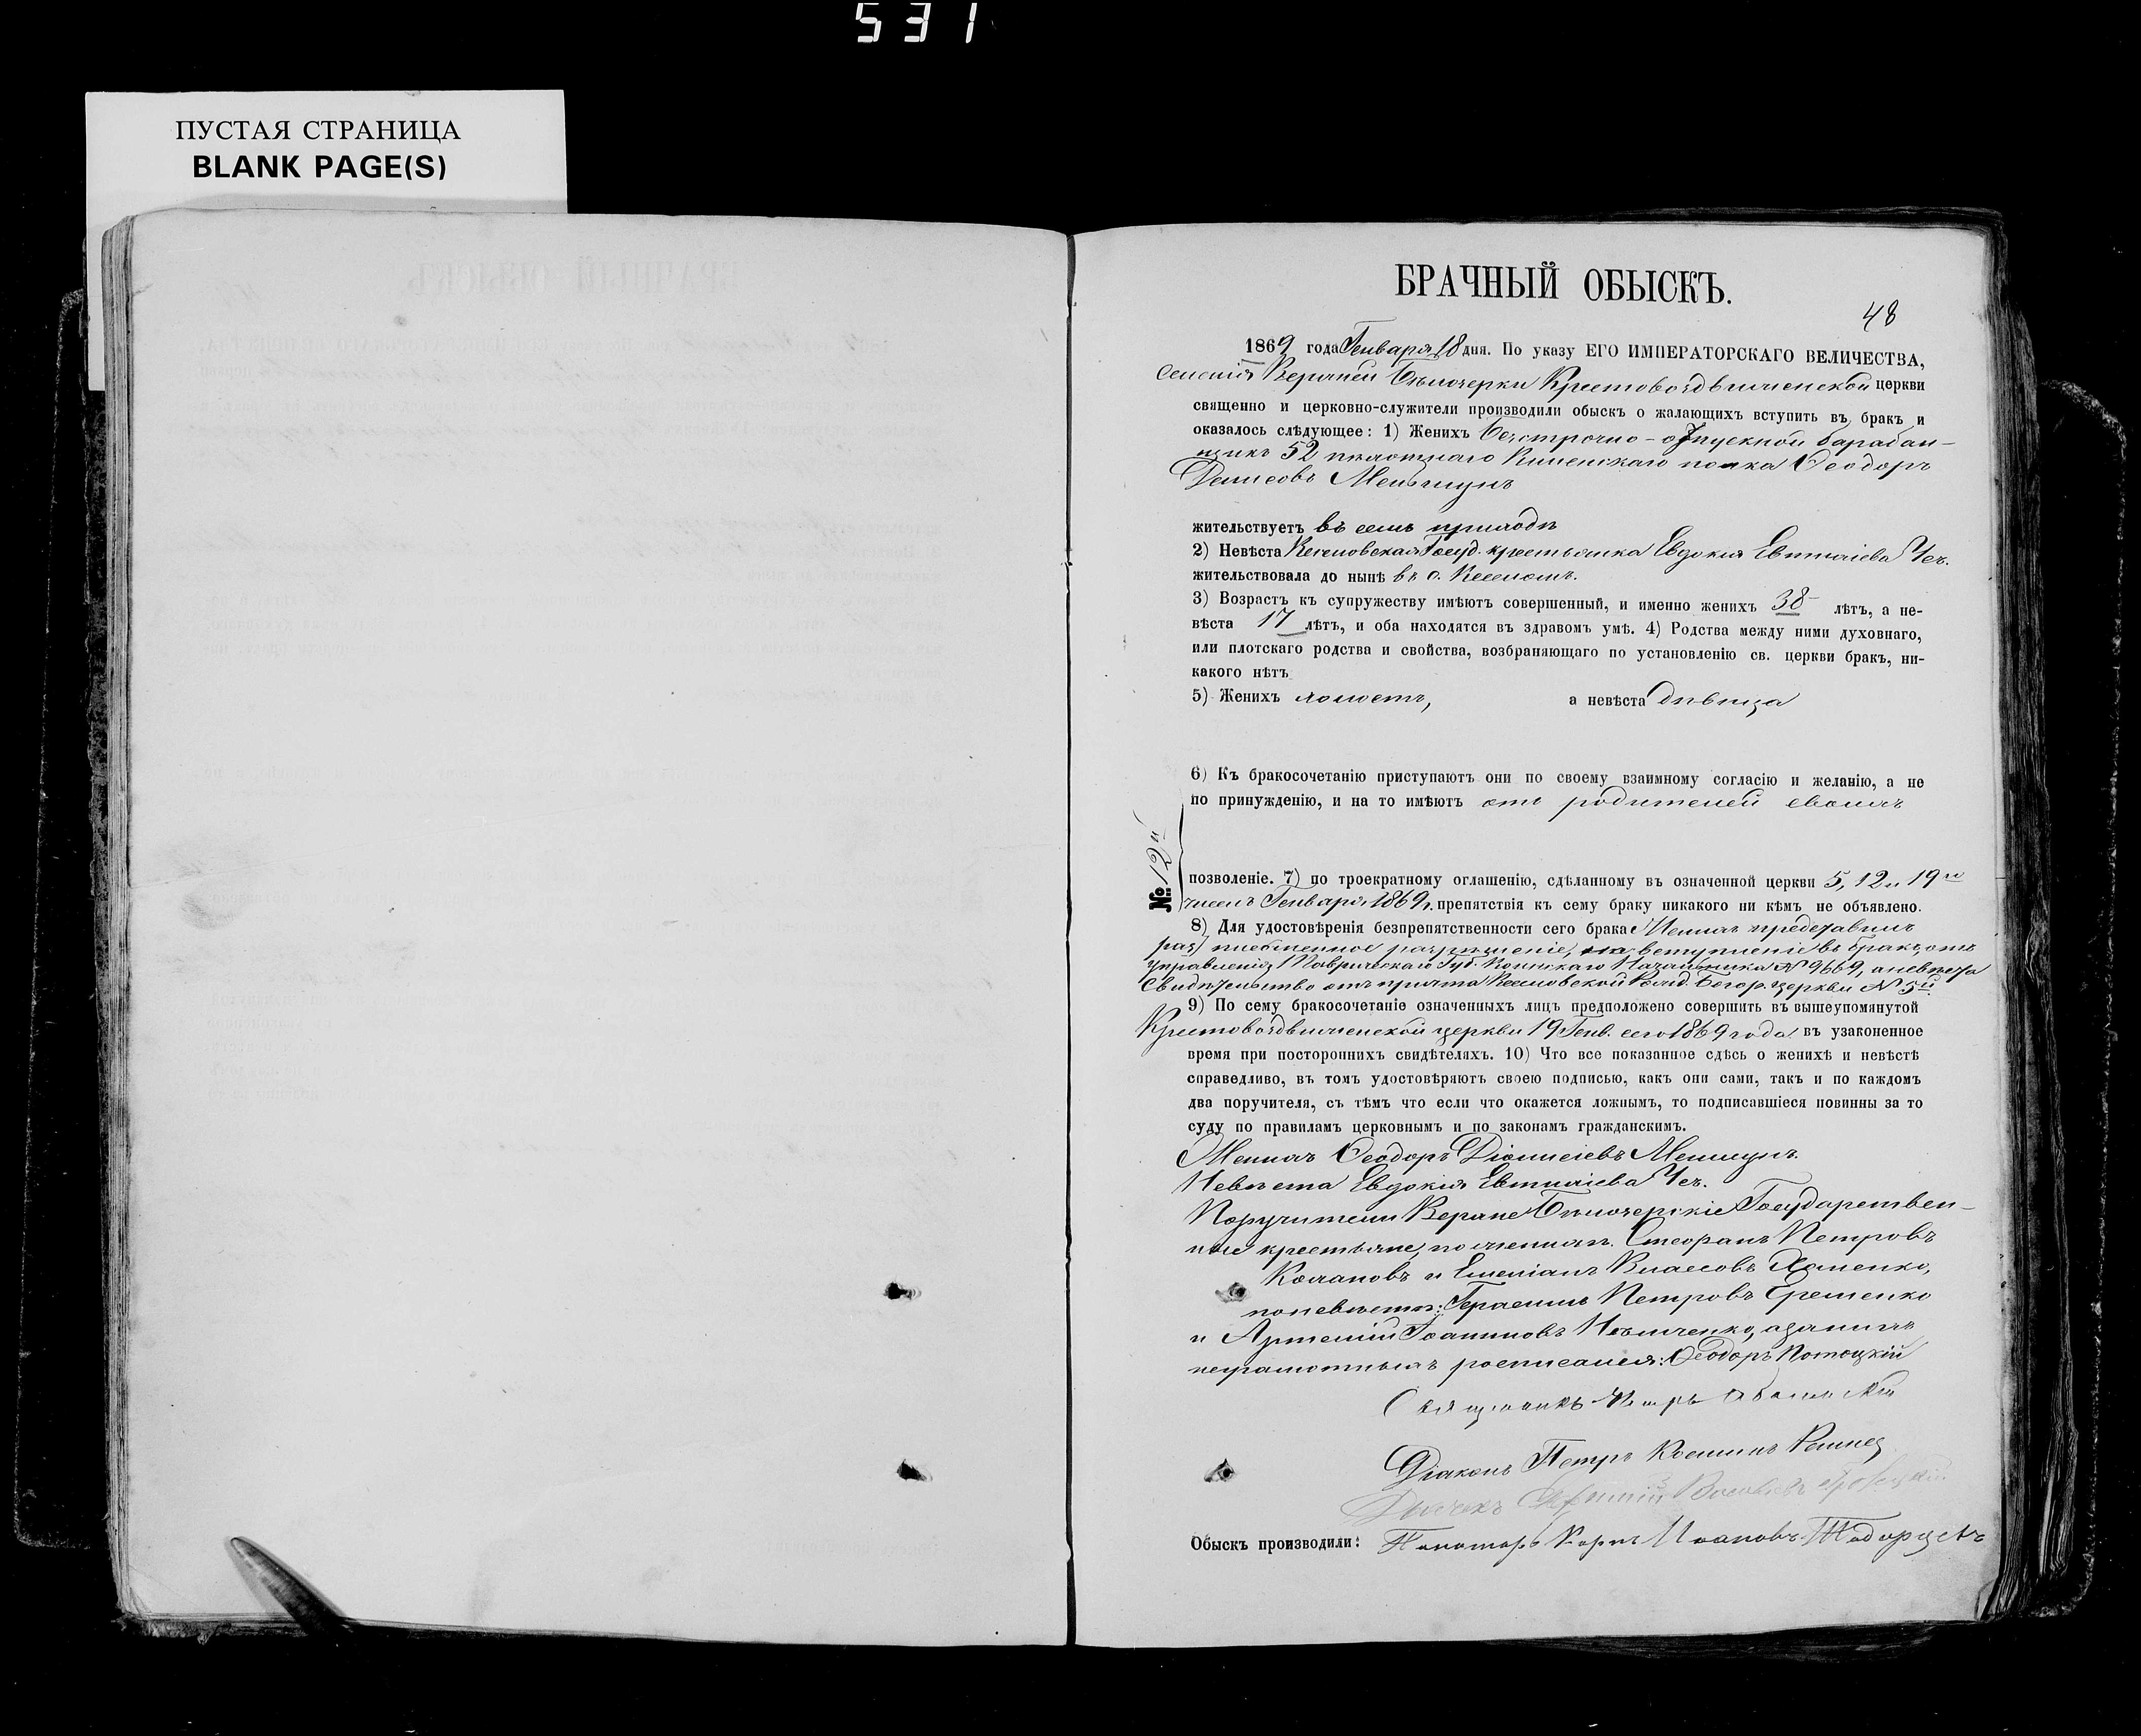 531
ПУСТАЯ СТРАНИЦА
BLANK PAGE(S)
БРАЧНЫЙ ОБЫСКЪ.
48
1869 года Генваря 18 дня. По указу ЕГО ИМПЕРАТОРСКАГО ВЕЛИЧЕСТВА,
селенія Верхней Бѣлозерки Крестовоздвиженской церкви
священно и церковно-служители производили обыскъ о жалающихъ вступить въ бракъ и
оказалось слѣдующее: 1) Женихъ безсрочно-отпускной барабан-
щикъ 52 пѣхотнаго Виленскаго полка Ѳеодоръ
Денисовъ
жительствуетъ въ семъ приходѣ
2) Невѣста Госуд. крестьянка Евдокія Евтихіева Чех.
жительствовала до нынѣ въ с.
3) Возрастъ къ супружеству имѣютъ совершенный, и именно женихъ 38 лѣтъ, а не-
вѣста 17 лѣтъ, и оба находятся въ здравомъ умѣ. 4) Родства между ними духовнаго,
или плотскаго родства и свойства, возбраняющаго по установленію св. церкви бракъ, ни-
какого нѣтъ
5) Женихъ холостъ, а невѣста дѣвица
6) Къ бракосочетанію приступаютъ они по своему взаимному согласію и желанію, а не
по принужденію, и на то имѣютъ отъ родителей своихъ
№ 12й
позволеніе. 7) по троекратному оглашенію, сдѣланному въ означенной церкви 5, 12 и 19го
чиселъ Генваря 1869 г. препятствія къ сему браку никакого ни кѣмъ не объявлено.
8) Для удостовѣренія безпрепятственности сего брака Женихъ представилъ
письменное разрѣшеніе, на вступленіе въ бракъ, отъ
управленія Таврическаго Губ. Воинскаго Начальника № 9669, а невѣста
Свидѣтельство отъ причта Рожд. Богор. церкви № 5й
9) По сему бракосочетаніе означенныхъ лицъ предположено совершить въ вышеупомянутой
Крестовоздвиженской церкви 19 Генв. сего 1869 года въ узаконенное
время при постороннихъ свидѣтеляхъ. 10) Что все показанное сдѣсь о женихѣ и невѣстѣ
справедливо, въ томъ удостовѣряютъ своею подписью, какъ они сами, такъ и по каждомъ
два поручителя, съ тѣмъ что если что окажется ложнымъ, то подписавшіеся повинны за то
суду по правиламъ церковнымъ и по законамъ гражданскимъ.
Женихъ Ѳеодоръ Діонисіевъ
Невѣста Евдокія Евтихіева Чех.
Поручители Верхне Бѣлозерскіе Государствен-
ные крестьяне, по женихѣ: Стефанъ Петровъ
и Емеліанъ Власовъ
по невѣстѣ: Герасимъ Петровъ
и Артемій Іоанновъ а за нихъ
неграмотныхъ росписался: Ѳеодоръ Потоцкій
Священникъ Петръ
Діаконъ Петръ
Дьячекъ
Обыскъ производили: Пономарь Иоановъ